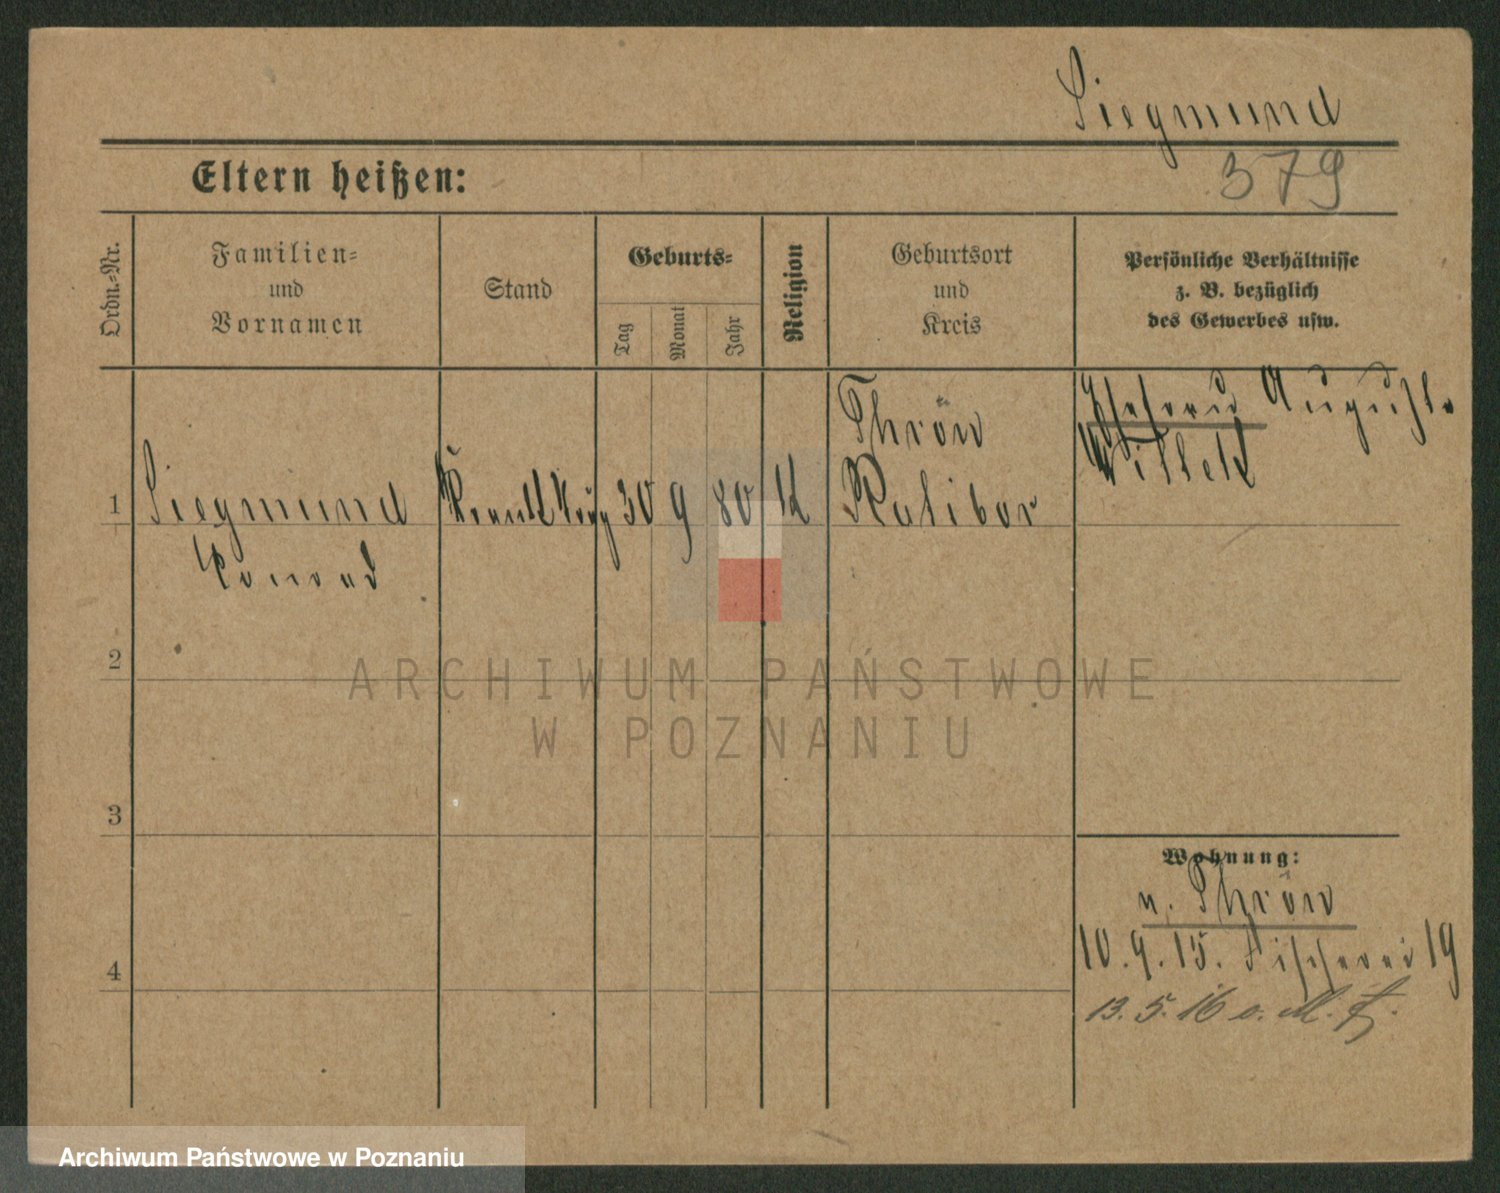 Siegmund
379
Eltern heißen:
Ordn.-Nr.
Familien-
und
Vornamen
Stand
Geburts-
Tag
Monat
Jahr
Religion
Geburtsort
und
Kreis
Persönliche Verhältnisse
z. B. bezüglich
des Gewerbes usw.
1
Siegmund
Conrad
30
9
80
K
Thröm
Ratibor
Ehefrau Auguste
Willek
2
3
4
Wohnung:
n. Thröm
10.9.15. Fischerei 19
13.5.16 o. M. f.
ARCHIWUM PAŃSTWOWE
W POZNANIU
Archiwum Państwowe w Poznaniu